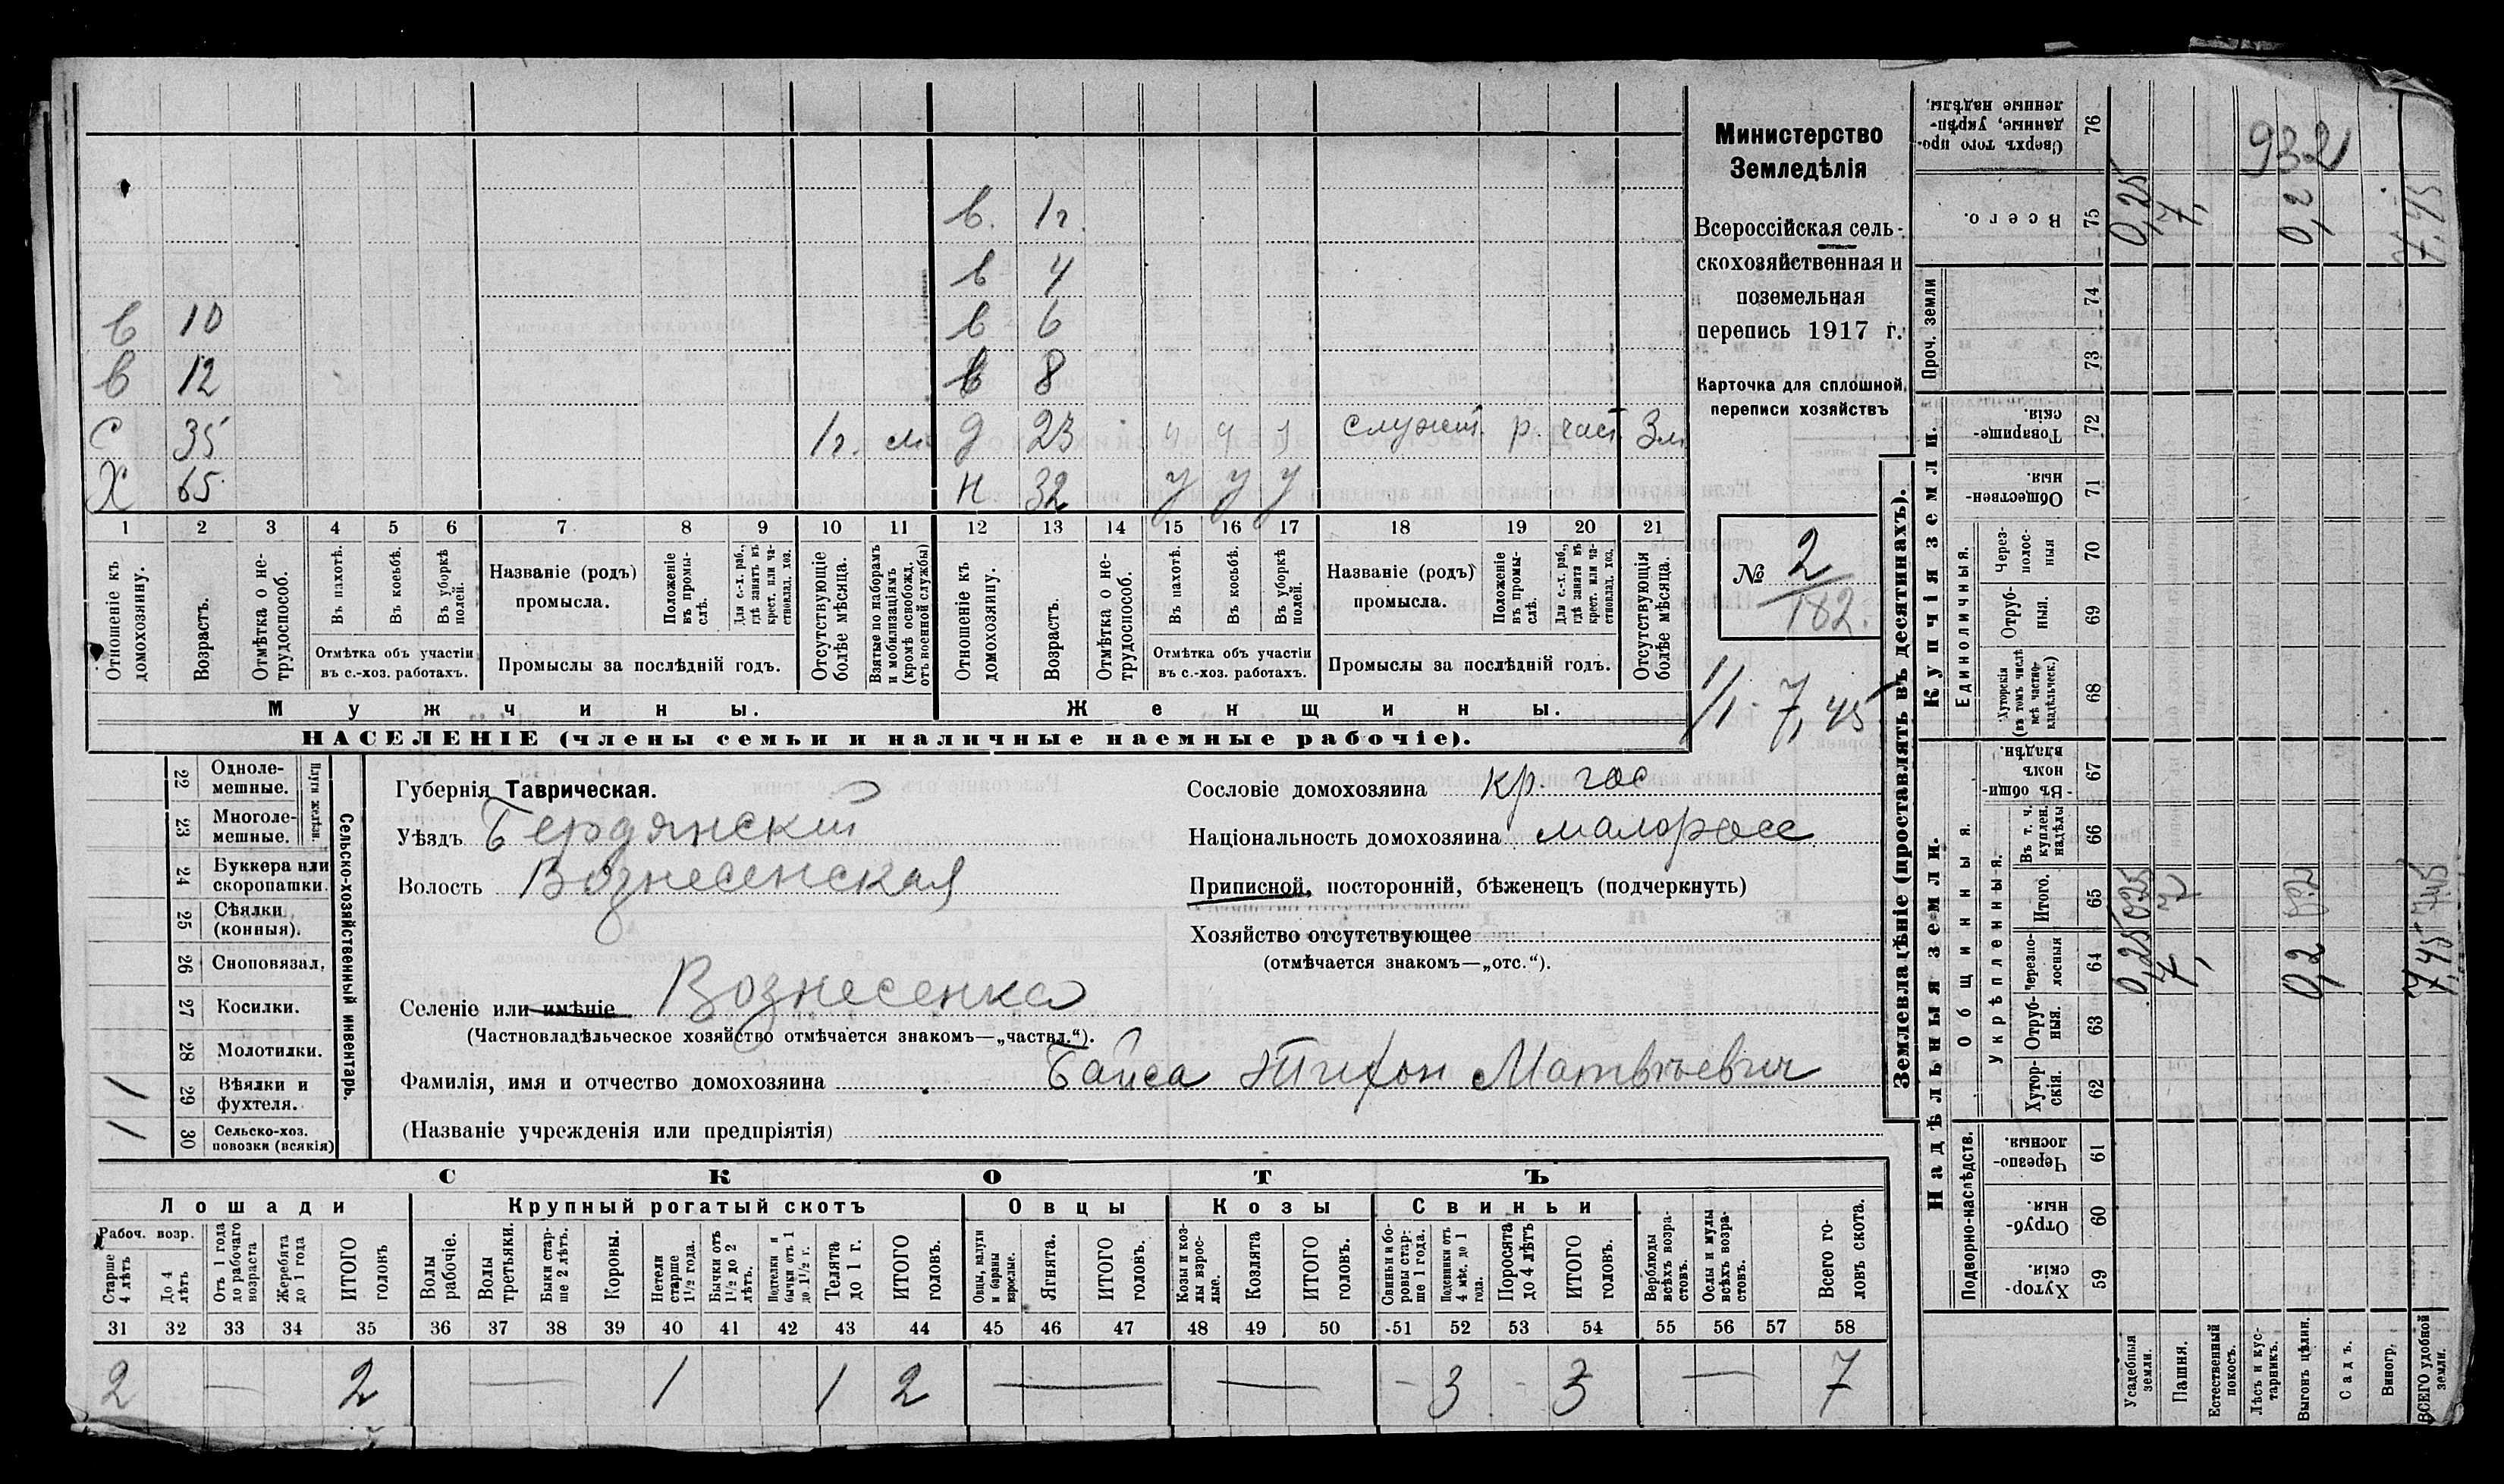 в. 1г.
в 4
в 10 в 6
в 12 в 8
С 35 1г. м. д 23 ч ч служит. р. част. 3м
Х 65 н 32 у у у
1 2 3 4 5 6 7 8 9 10 11 12 13 14 15 16 17 18 19 20 21
Отношеніе къ домохозяину.
Возрастъ.
Отмѣтка о не-
трудоспособ.
Въ пахотѣ.
Въ косьбѣ.
Въ уборкѣ
полей.
Отмѣтка объ участіи
въ с.-хоз. работахъ.
Названіе (родъ)
промысла.
Положеніе
въ промы-
слѣ.
Для с.-х. раб.,
гдѣ занятъ въ
крест. или ча-
стновлад. хоз.
Промыслы за послѣдній годъ.
Отсутствующіе
болѣе мѣсяца.
Взятые по наборамъ
и мобилизаціямъ
(кромѣ освобожд.
отъ военной службы)
Отношеніе къ
домохозяину.
Возрастъ.
Отмѣтка о не-
трудоспособ.
Въ пахотѣ.
Въ косьбѣ.
Въ уборкѣ
полей.
Отмѣтка объ участіи
въ с.-хоз. работахъ.
Названіе (родъ)
промысла.
Положеніе
въ промы-
слѣ.
Для с.-х. раб.,
гдѣ занята въ
крест. или ча-
стновлад. хоз.
Промыслы за послѣдній годъ.
Отсутствующія
болѣе мѣсяца.
Мужчины. Женщины.
НАСЕЛЕНІЕ (члены семьи и наличные наемные рабочіе).
Министерство
Земледѣлія
Всероссійская сель-
скохозяйственная и
поземельная
перепись 1917 г.
Карточка для сплошной
переписи хозяйствъ
№ 2
182.
1/1. 7,45
Сельско-хозяйственный инвентарь.
Плуги желѣзн.
22 Одноле-
мешные.
23 Многоле-
мешные.
24 Буккера или
скоропашки.
25 Сѣялки
(конныя).
26 Сноповязал.
27 Косилки.
28 Молотилки.
1 29 Вѣялки и
фухтеля.
1 30 Сельско-хоз.
повозки (всякія)
Губернія Таврическая.
Уѣздъ Бердянскій
Волость Вознесенская
Селеніе или имѣніе Вознесенка
(Частновладѣльческое хозяйство отмѣчается знакомъ—„частвл.“).
Сословіе домохозяина кр. гос
Національность домохозяина малоросс
Приписной, посторонній, бѣженецъ (подчеркнуть)
Хозяйство отсутствующее
(отмѣчается знакомъ—„отс.“).
Фамилія, имя и отчество домохозяина Байса Тихон Матвѣевич
(Названіе учрежденія или предпріятія)
СКОТЪ
Лошади Крупный рогатый скотъ Овцы Козы Свиньи
Рабоч. возр.
Старше
4 лѣтъ
До 4
лѣтъ
Отъ 1 года
до рабочаго
возраста
Жеребята
до 1 года
ИТОГО
головъ
Волы
рабочіе.
Волы
третьяки.
Быки стар-
ше 2 лѣтъ.
Коровы.
Нетели
старше
1½ года.
Бычки отъ
1½ до 2
лѣтъ.
Нетелки и
бычки отъ 1
до 1½ г.
Телята
до 1 г.
ИТОГО
головъ.
Овцы, валухи
и бараны
взрослые.
Ягнята.
ИТОГО
головъ.
Козы и коз-
лы взрос-
лые.
Козлята
ИТОГО
головъ.
Свиньи и бо-
ровы стар-
ше 1 года.
Подсвинки отъ
4 мѣс. до 1
года.
Поросята
до 4 лѣтъ
ИТОГО
головъ.
Верблюды
всѣхъ возра-
стовъ.
Ослы и мулы
всѣхъ возра-
стовъ.
Всего го-
ловъ скота.
31 32 33 34 35 36 37 38 39 40 41 42 43 44 45 46 47 48 49 50 51 52 53 54 55 56 57 58
2 — 2 — 1 1 2 — — - 3 - 3 — 7
Землевладѣніе (проставлять въ десятинахъ).
Надѣльныя земли. Купчія земли. Проч. земли
Подворно-наслѣдств.
Общинныя.
Укрѣпленныя.
Единоличныя.
Хутор-
скія. 59
Отруб-
ныя. 60
Черезпо-
лосныя. 61
Хутор-
скія. 62
Отруб-
ныя. 63
Черезпо-
лосныя 64
Итого. 65
Въ т. ч.
куплен.
надѣлы 66
Въ общи-
номъ
владѣн. 67
Хуторскія
(въ томъ числѣ
всѣ частно-
владѣльческ.) 68
Отруб-
ныя. 69
Через-
полос-
ныя 70
Обществен-
ныя. 71
Товарище-
скія. 72
73
74
Всего. 75
Сверхъ того про-
данные, укрѣп-
ленные надѣлы. 76
Усадебныя
земли.
Пашня.
Естественный
покосъ.
Лѣсъ и кус-
тарникъ.
Выгонъ цѣлин.
Садъ.
Виногр.
ВСЕГО удобной
земли.
0,25 7, 0,2 7,45
0,25 7 0,2 7,45
0,25 7, 0,2 7,45
932